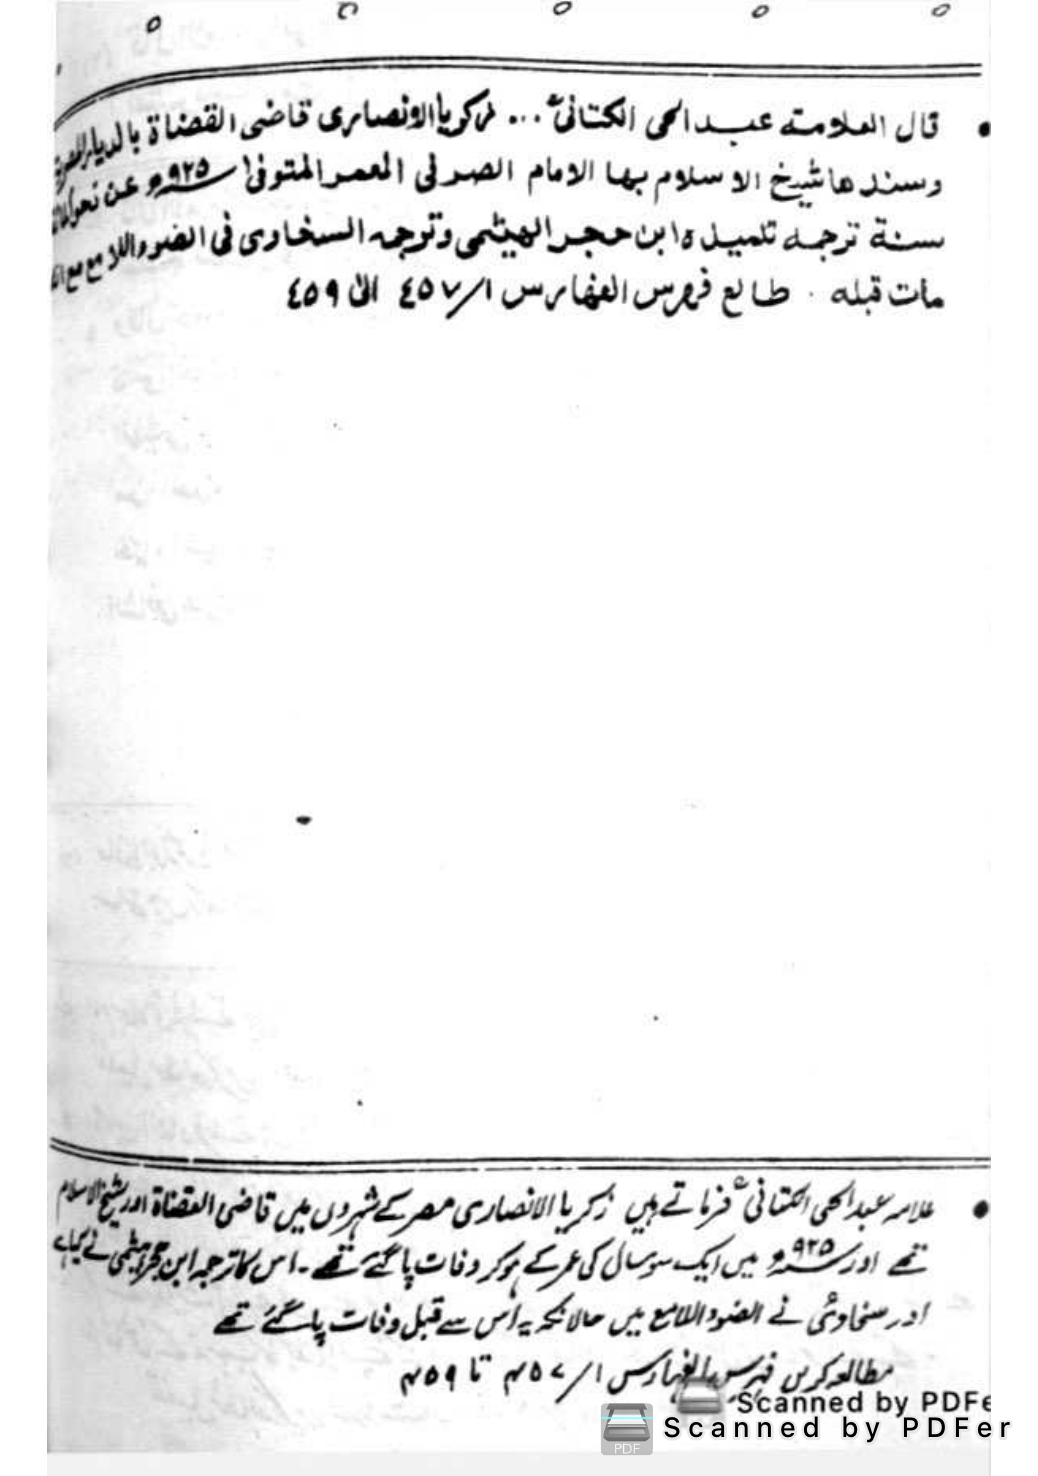 قال العلامته عبدالحی الکتانیؒ ... زکریا الانصاری قاضی القضاة بالدیار المصریة
وسندها شیخ الاسلام بها الامام الصدفی المعمر المتوفی ۹۲۵ سنه عن نحو
سنة ترجمه تلمیذه ابن حجر الهیثمی وترجمه السخاوی فی الضوء اللامع مع
مات قبله . طالع فهرس الفهارس ۱/٤٥٧ الیٰ ٤٥٩
علامہ عبدالحی الکتانیؒ فرماتے ہیں زکریا الانصاری مصر کے شہروں میں قاضی القضاة اور شیخ الاسلام
تھے اور ۹۲۵ سنہ میں ایک سو سال کی عمر کے ہوکر وفات پا گئے تھے ۔ اس کا ترجمہ ابن حجر ہیثمی نے کیا ہے
اور سخاویؒ نے الضوء اللامع میں حالانکہ یہ اس سے قبل وفات پا گئے تھے
مطالعہ کریں فہرس الفہارس ۱/۴۵۷ تا ۴۵۹
Scanned by PDFe
Scanned by PDFer
PDF